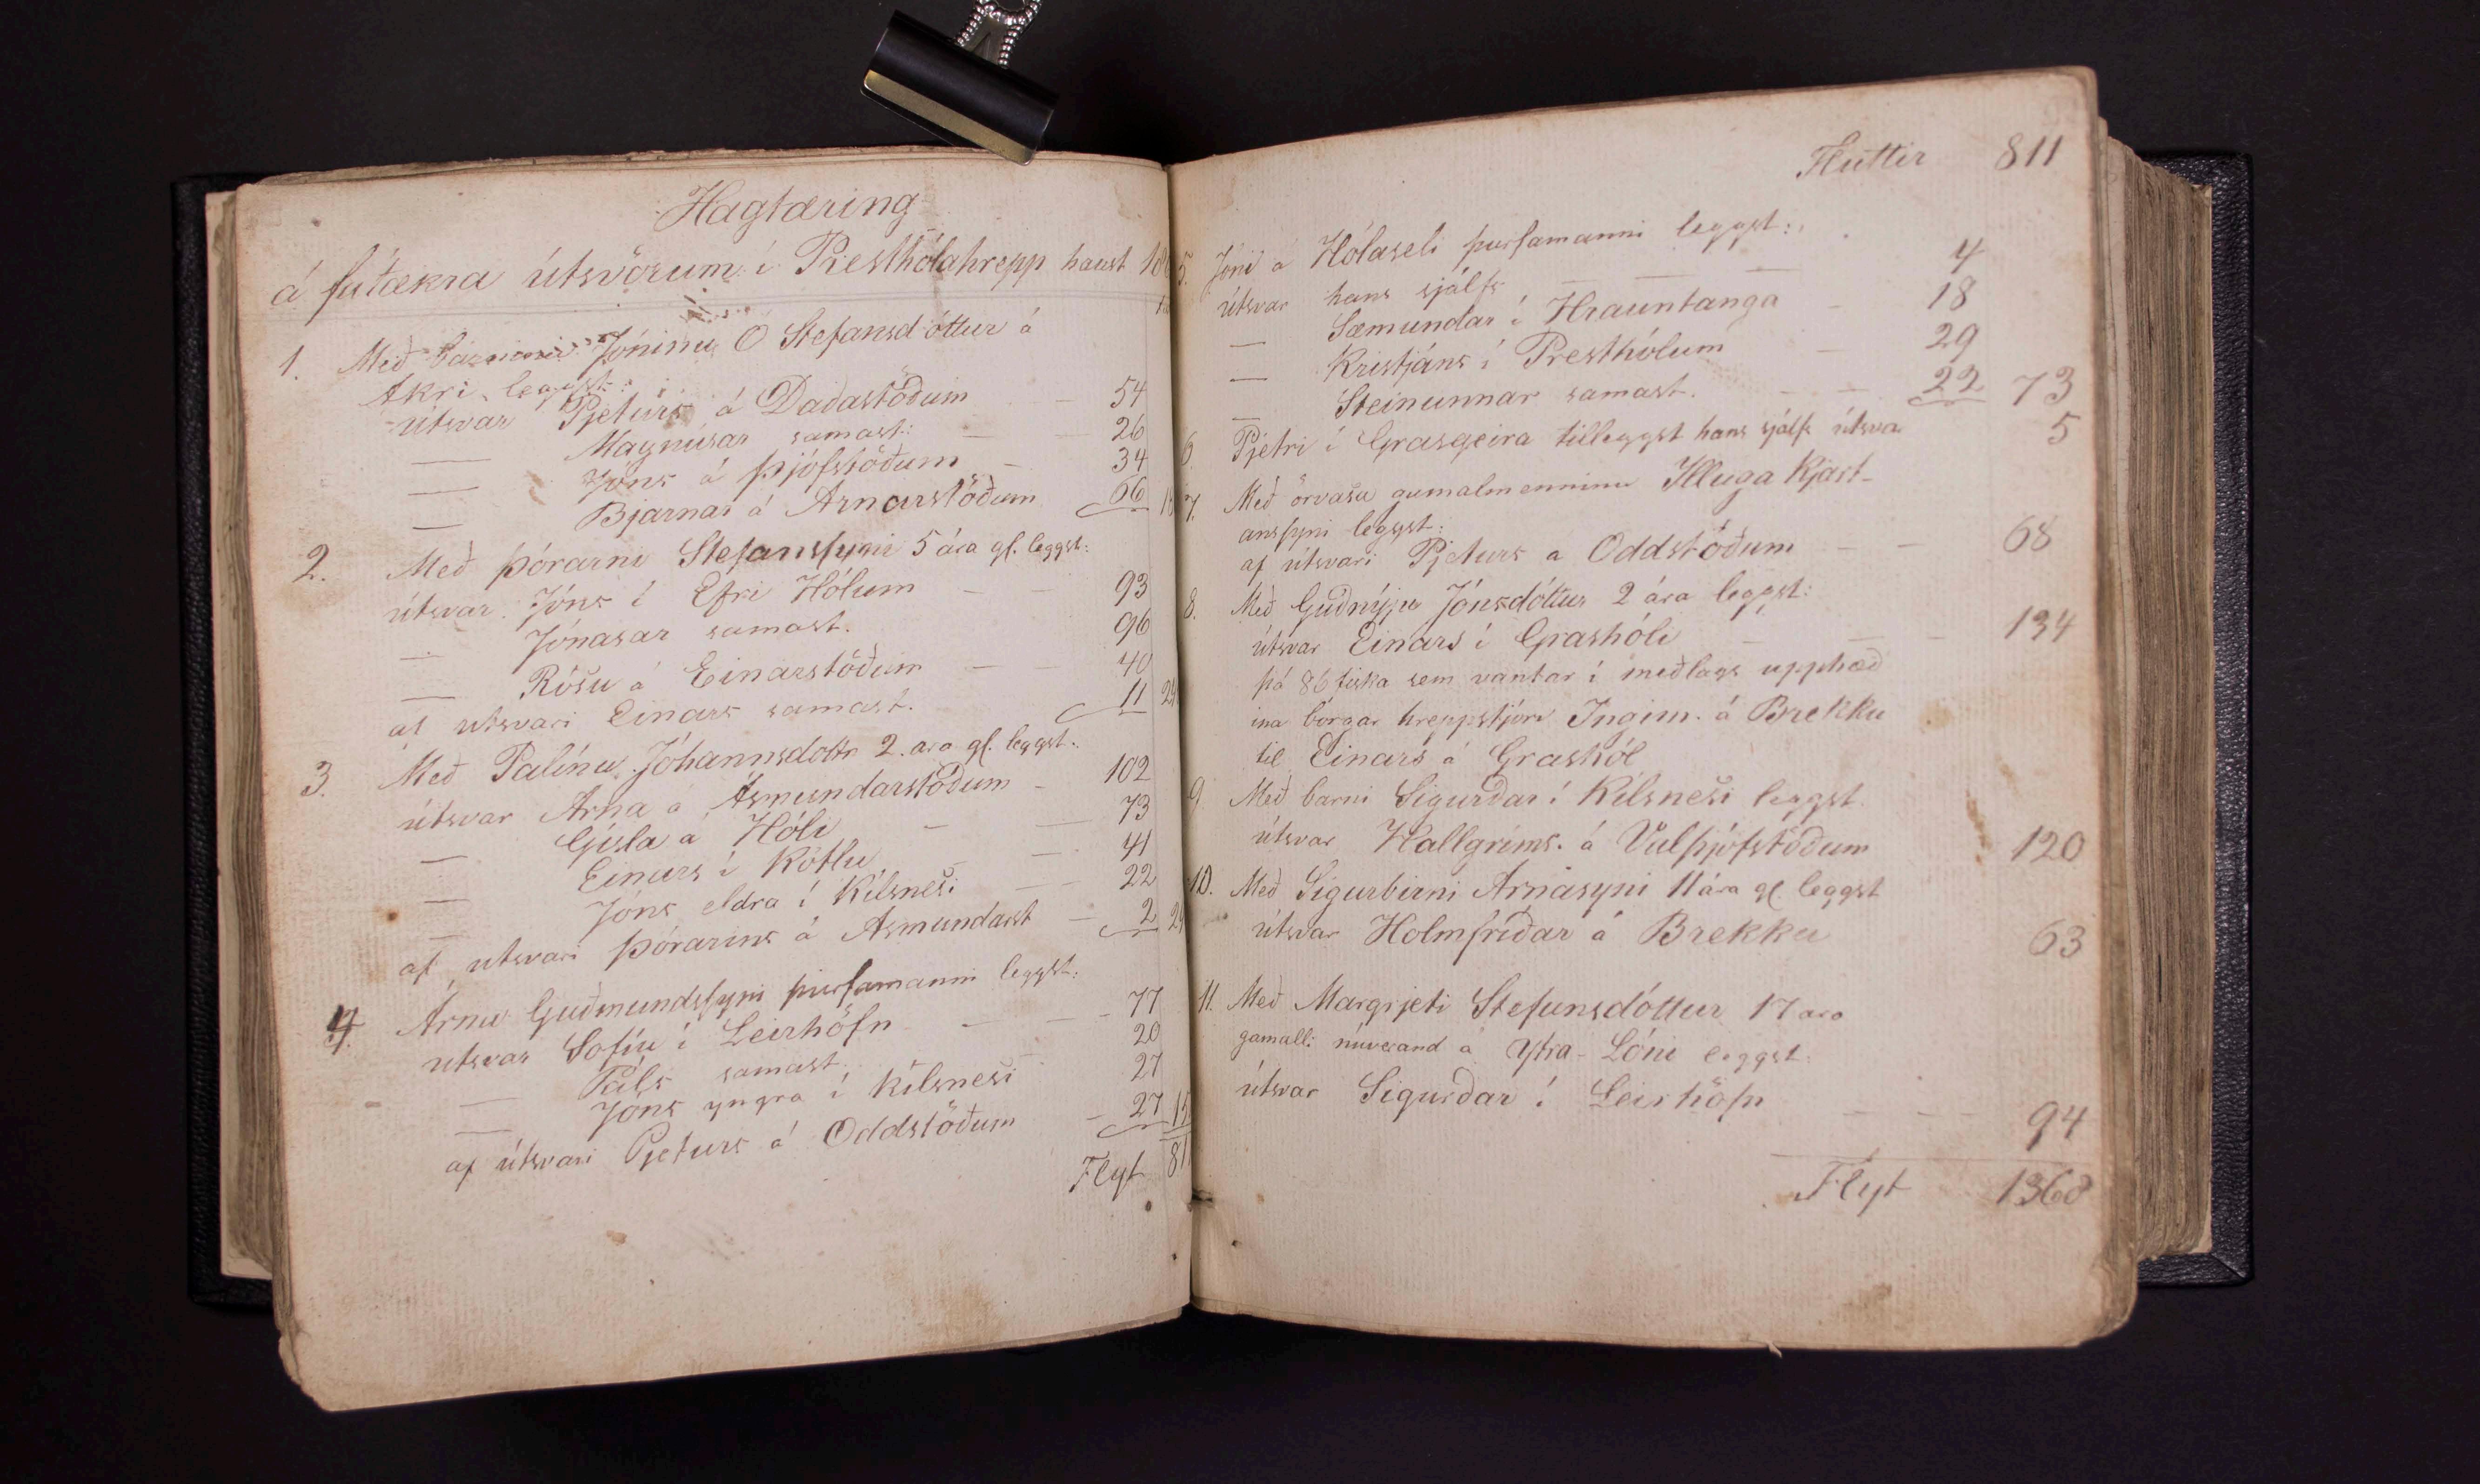 Hagtæring
á fátækra útsvörum í Presthólahrepp haust 18
1. Með Jóninu Ó Stefansdóttur á
Akri leggst:
útsvar Pjeturs á Daðastöðum — 54
— Magnúsar samast: — 26
— Jóns á Þjófstöðum — 34
— Bjarnar á Arnarstöðum 66
2. Með Þórarni Stefanssyni 5 ára gl. leggst:
útsvar Jóns í Efri Hólum — — 93
— Jónasar samast. 96
— Rósu á Einarstöðum — — 40
af útsvari Einars samast. 11
3. Með Palínu Jóhannsdottr 2. ara gl. leggst.
útsvar Arna á Ásmundarstöðum — 102
— Gísla á Hóli — — 73
— Einars í Kötlu — 41
— Jóns eldra í Kílsnesi — 22
af utsvari Þórarins á Asmundarst — 2
4. Árna Guðmundssyni þurfamanni leggst:
utsvar Sofíu í Leirhöfn — — 77
— Páls samast. 20
— Jóns yngra í Kílsnesi 27
af útsvari Pjeturs á Oddstöðum — 27
Flyt 81
Fluttir 811
5. Jóni á Hólaseli þurfamanni leggst:
útsvar hans sjálfs — — 4
— Sæmundar í Hrauntanga — 18
— Kristjáns í Presthólum — 29
— Steinunnar samast. — — 22 73
6. Pjetri í Grasgeira tilleggst hans sjálfs útsva 5
7. Með örvasa gamalmenninu Illuga Kjart-
anssyni leggst:
af útsvari Pjeturs a Oddstöðum — — 68
8. Með Guðnýju Jónsdóttur 2 ára leggst:
útsvar Einars í Grashóli — — — 134
þá 86 fiska sem vantar í meðlags upphæð
ina borgar hreppstjóri Ingim. á Brekku
til Einars á Grashól
9. Með barni Sigurðar í Kílsnesi leggst.
útsvar Hallgríms. á Valþjófstöðum 120
10. Með Sigurbirni Arnasyni 11 ára gl. leggst
útsvar Holmfríðar á Brekku 63
11. Með Margrjeti Stefansdóttur 17 ara
gamall: núverand á Ytra-Lóni leggst:
útsvar Sigurðar í Leirhöfn — — — 94
Flyt 1368